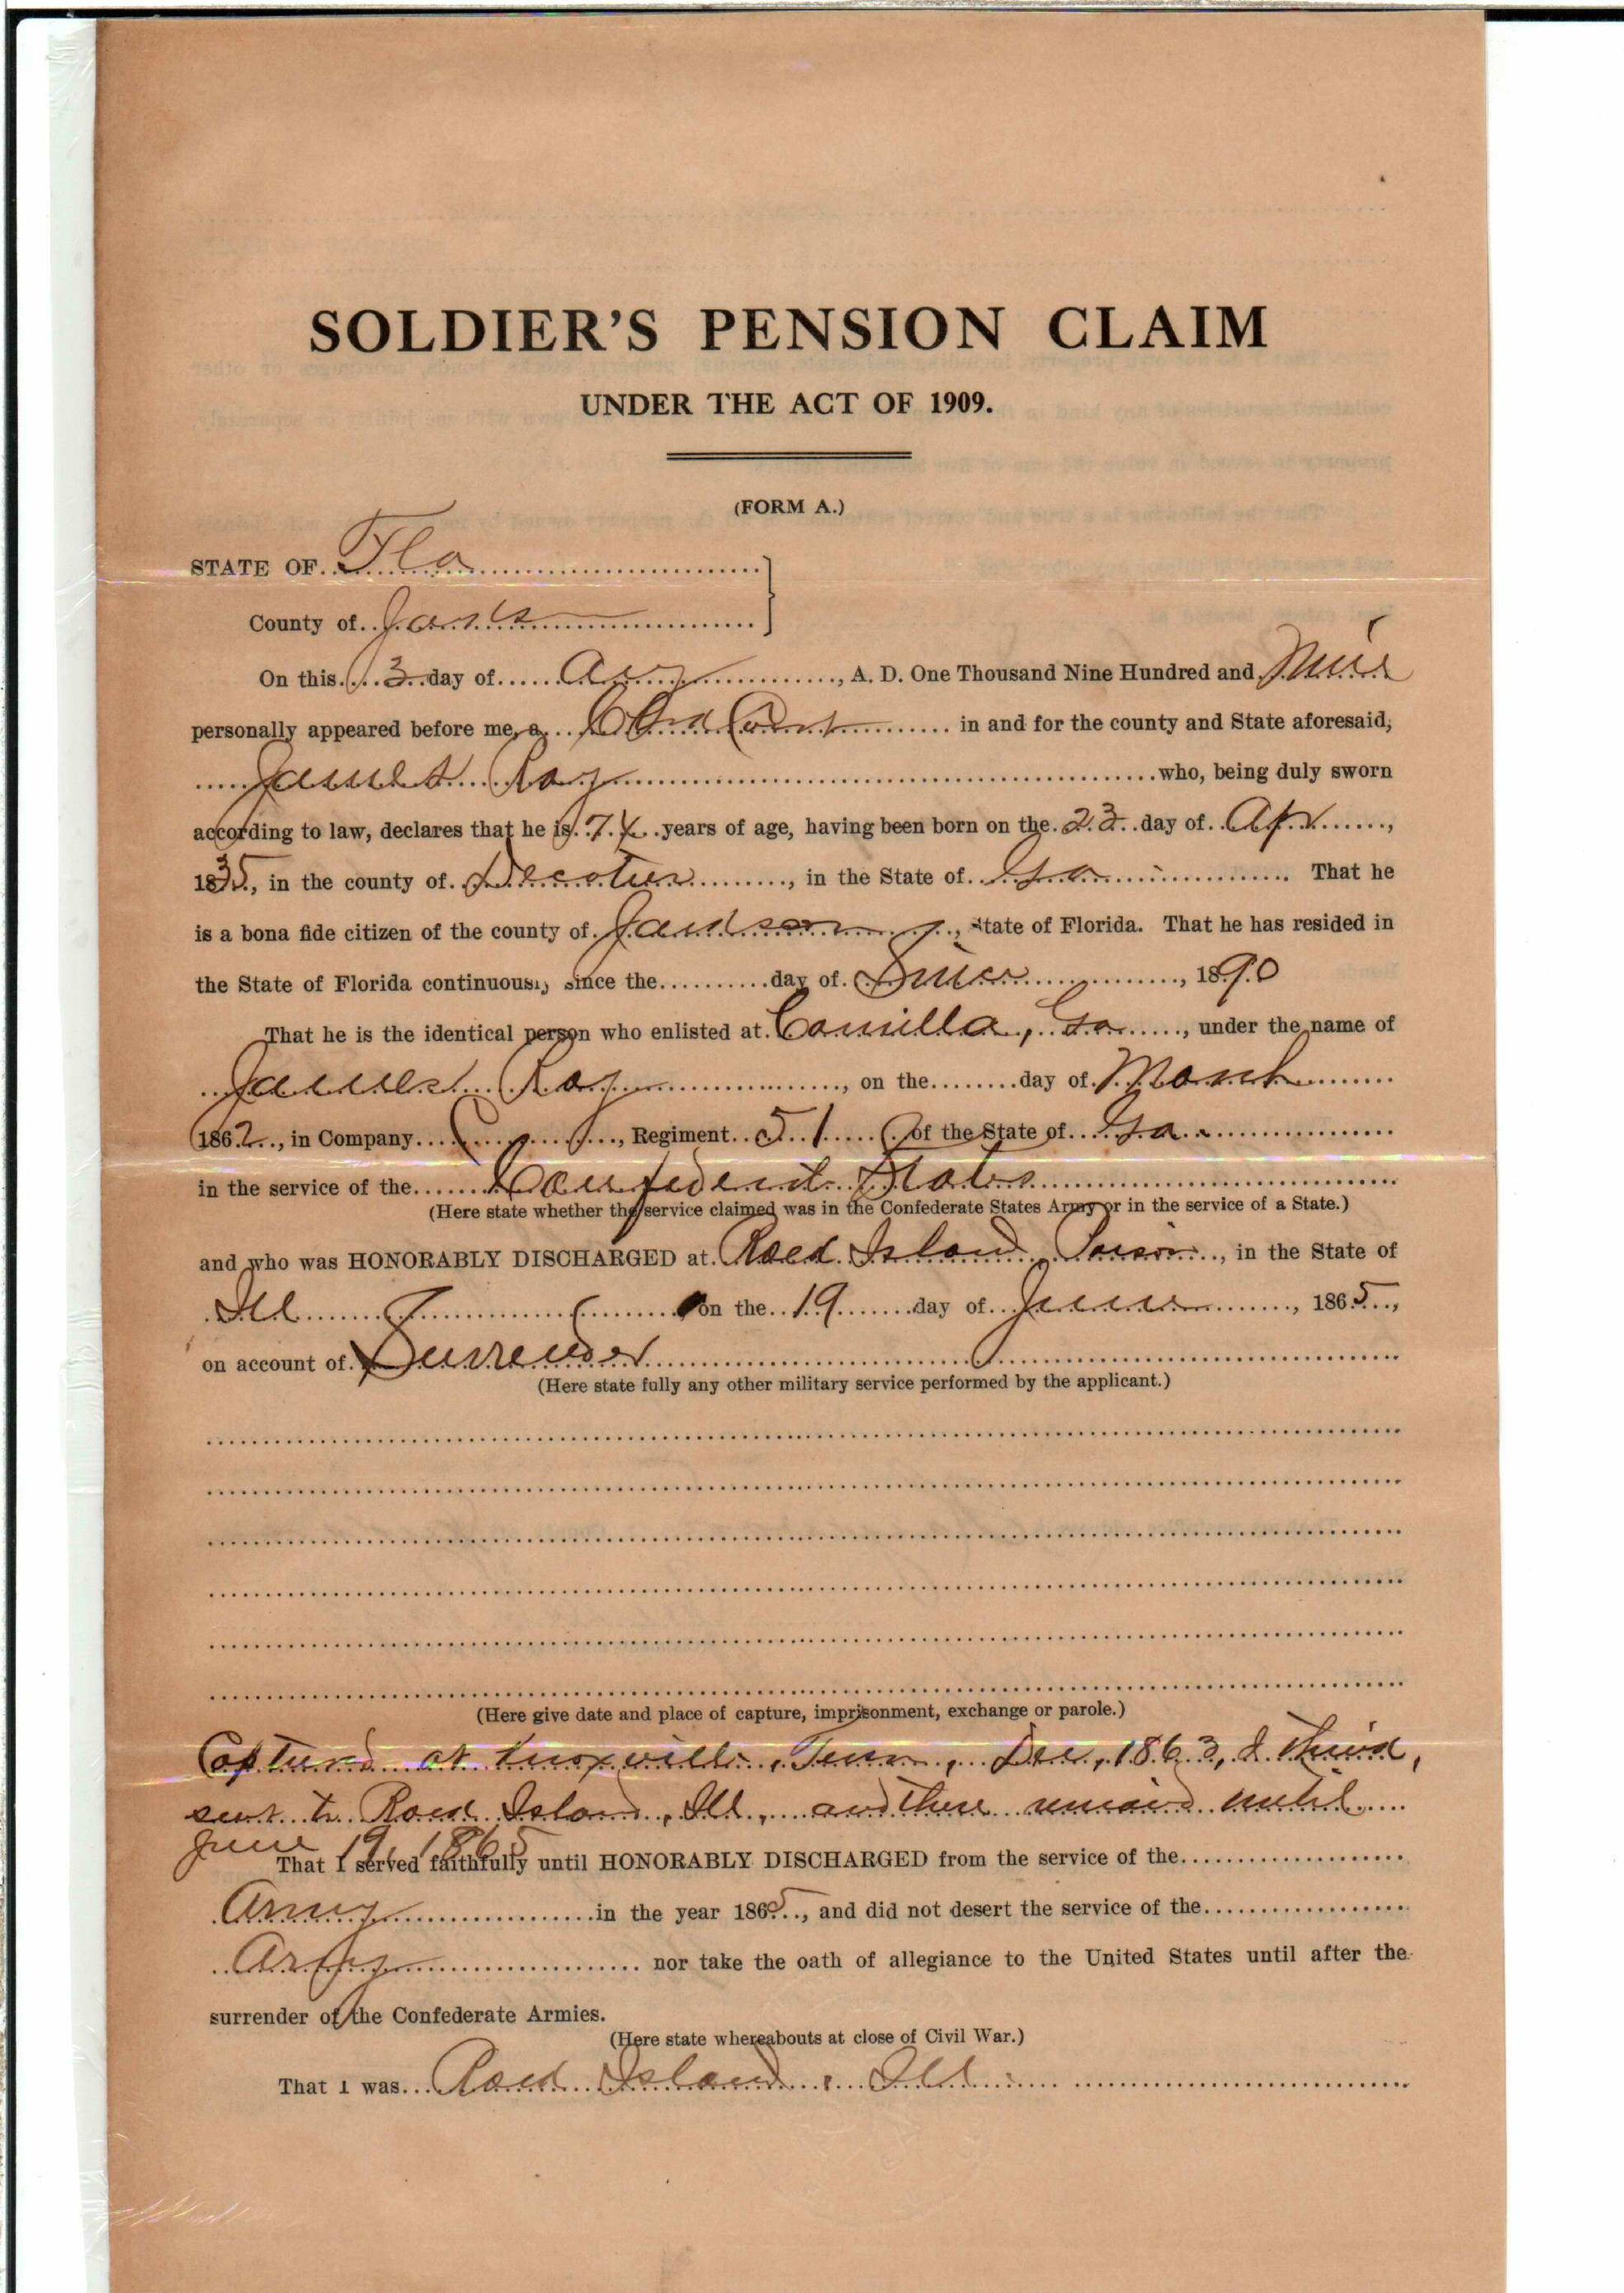 SOLDIER'S PENSION CLAIM
UNDER THE ACT OF 1909.
(FORM A.)
STATE OF Fla
County of Jack
On this 3 day of Aug, A. D. One Thousand Nine Hundred and Nine
personally appeared before me, a Court in and for the county and State aforesaid,
James Ray who, being duly sworn
according to law, declares that he is 74 years of age, having been born on the 23 day of Apr,
1835, in the county of Decatur, in the State of Ga. That he
is a bona fide citizen of the county of Jackson, State of Florida. That he has resided in
the State of Florida continuously since the day of Since, 1890
That he is the identical person who enlisted at Camilla, Ga, under the name of
James Ray, on the day of March
1862, in Company, Regiment 51 of the State of Ga.
in the service of the Confederate States
(Here state whether the service claimed was in the Confederate States Army or in the service of a State.)
and who was HONORABLY DISCHARGED at Rock Island Prison, in the State of
Ill on the 19 day of June, 1865,
on account of Surrender
(Here state fully any other military service performed by the applicant.)
(Here give date and place of capture, imprisonment, exchange or parole.)
Captured at Knoxville, Tenn, Dec, 1863,
sent to Rock Island, Ill, and there remaind until
June 19, 1865
That I served faithfully until HONORABLY DISCHARGED from the service of the
Army in the year 1865, and did not desert the service of the
Army nor take the oath of allegiance to the United States until after the
surrender of the Confederate Armies.
(Here state whereabouts at close of Civil War.)
That I was Rock Island, Ill